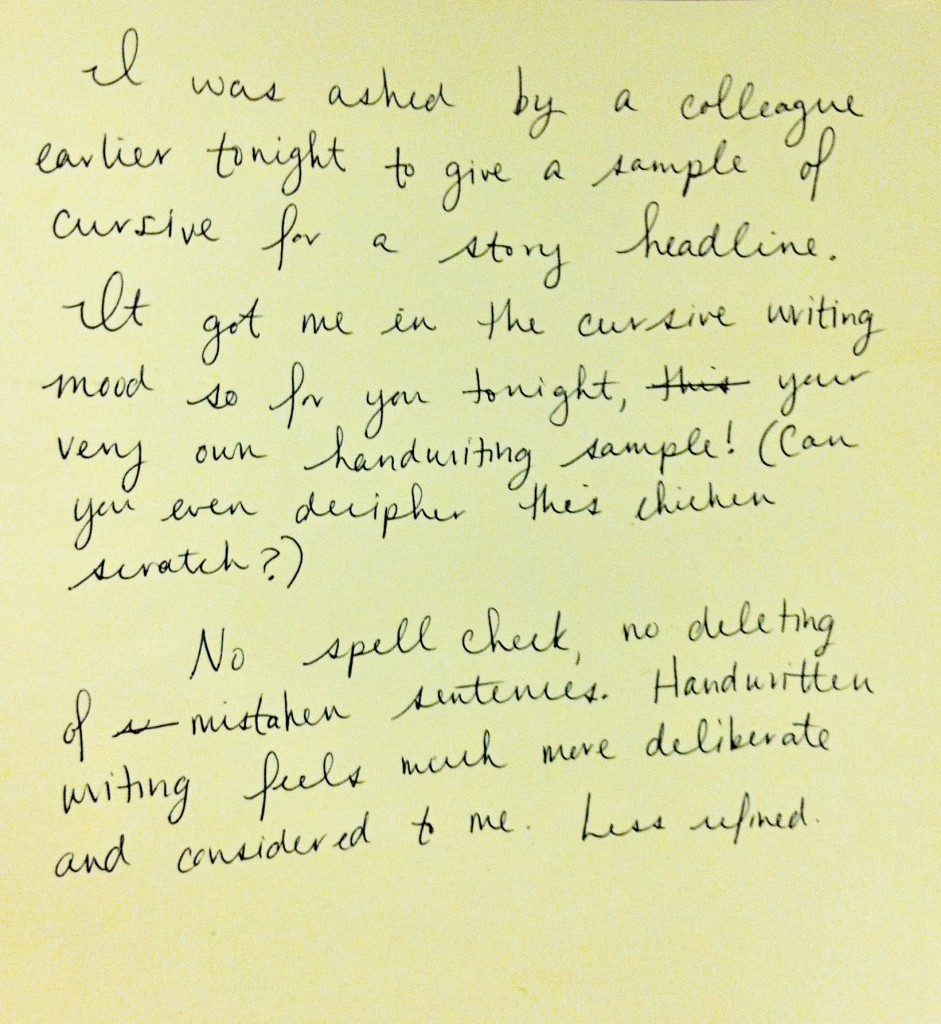 I was asked by a colleague
earlier tonight to give a sample of
cursive for a story headline.
It got me in the cursive writing
mood so for you tonight, this your
very own handwriting sample! (Can
you even decipher this chicken
scratch?)
No spell check, no deleting
of s mistaken sentences. Handwritten
writing feels much more deliberate
and considered to me. Less refined.